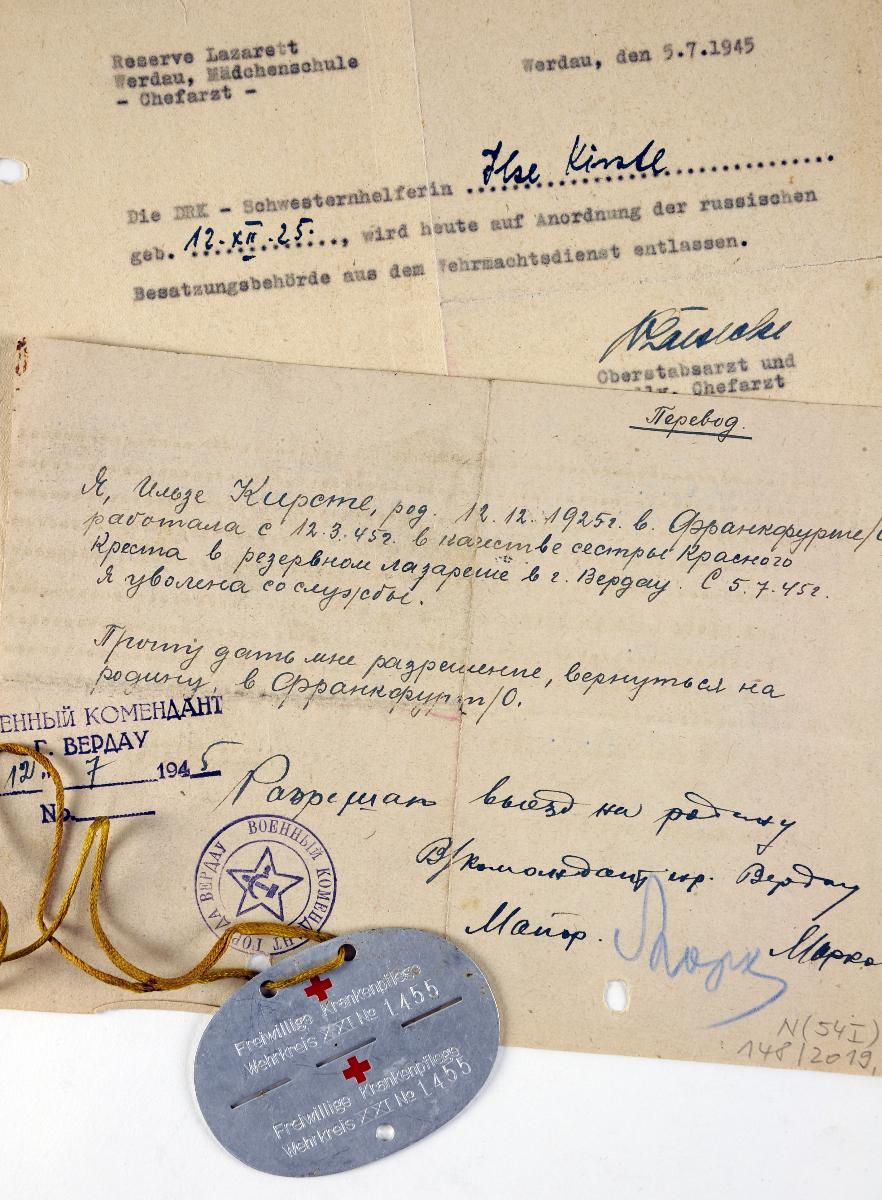 Reserve Lazarett
Werdau, Mädchenschule
- Chefarzt -
Werdau, den 5.7.1945
Die DRK - Schwesternhelferin Ilse Kirste
geb. 12.XII.25., wird heute auf Anordnung der russischen
Besatzungsbehörde aus dem Wehrmachtsdienst entlassen.
Oberstabsarzt und
Chefarzt
Перевод.
Я, Ильзе Кирсте, род. 12.12.1925г. в. Франкфурте/
работала с 12.3.45г. в качестве сестры Красного
Креста в резервном лазарете в г. Вердау. С 5.7.45г.
я уволена со службы.
Прошу дать мне разрешение, вернуться на
родину, в Франкфурт/О.
ЕННЫЙ КОМЕНДАНТ
Г. ВЕРДАУ
12 " 7 1945
No.
Разрешаю выезд на родину
В/комендант гор. Вердау
Майор. Марко
ВОЕННЫЙ КОМЕНДАНТ ГОРОДА ВЕРДАУ
Freiwillige Krankenpflege
Wehrkreis XXI No 1455
Freiwillige Krankenpflege
Wehrkreis XXI No 1455
N(54I)
148/2019,